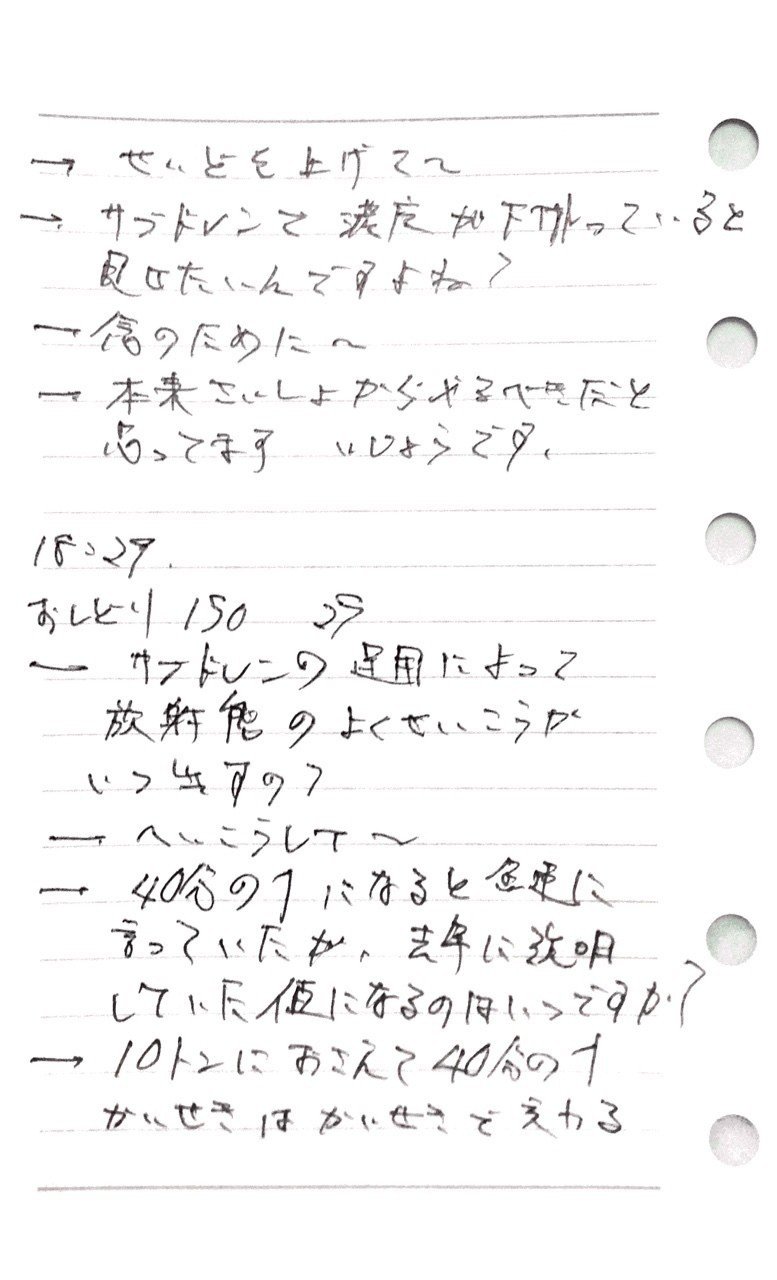 → せいどを上げて〜
→ サブドレンで濃度が下がっていると
見せたいんですよね?
→ 念のために〜
→ 本来さいしょからやるべきだと
思ってます いじょうです、
18:29
おしどり 150 29
→ サブドレンの運用によって
放射能のよくせいこうか
いつ出すの?
→ へいこうして〜
→ 40分の1になると
言っていたが、去年に説明
していた値になるのはいつですか?
→ 10トンにおさえて40分の1
かいせきはかいせきで